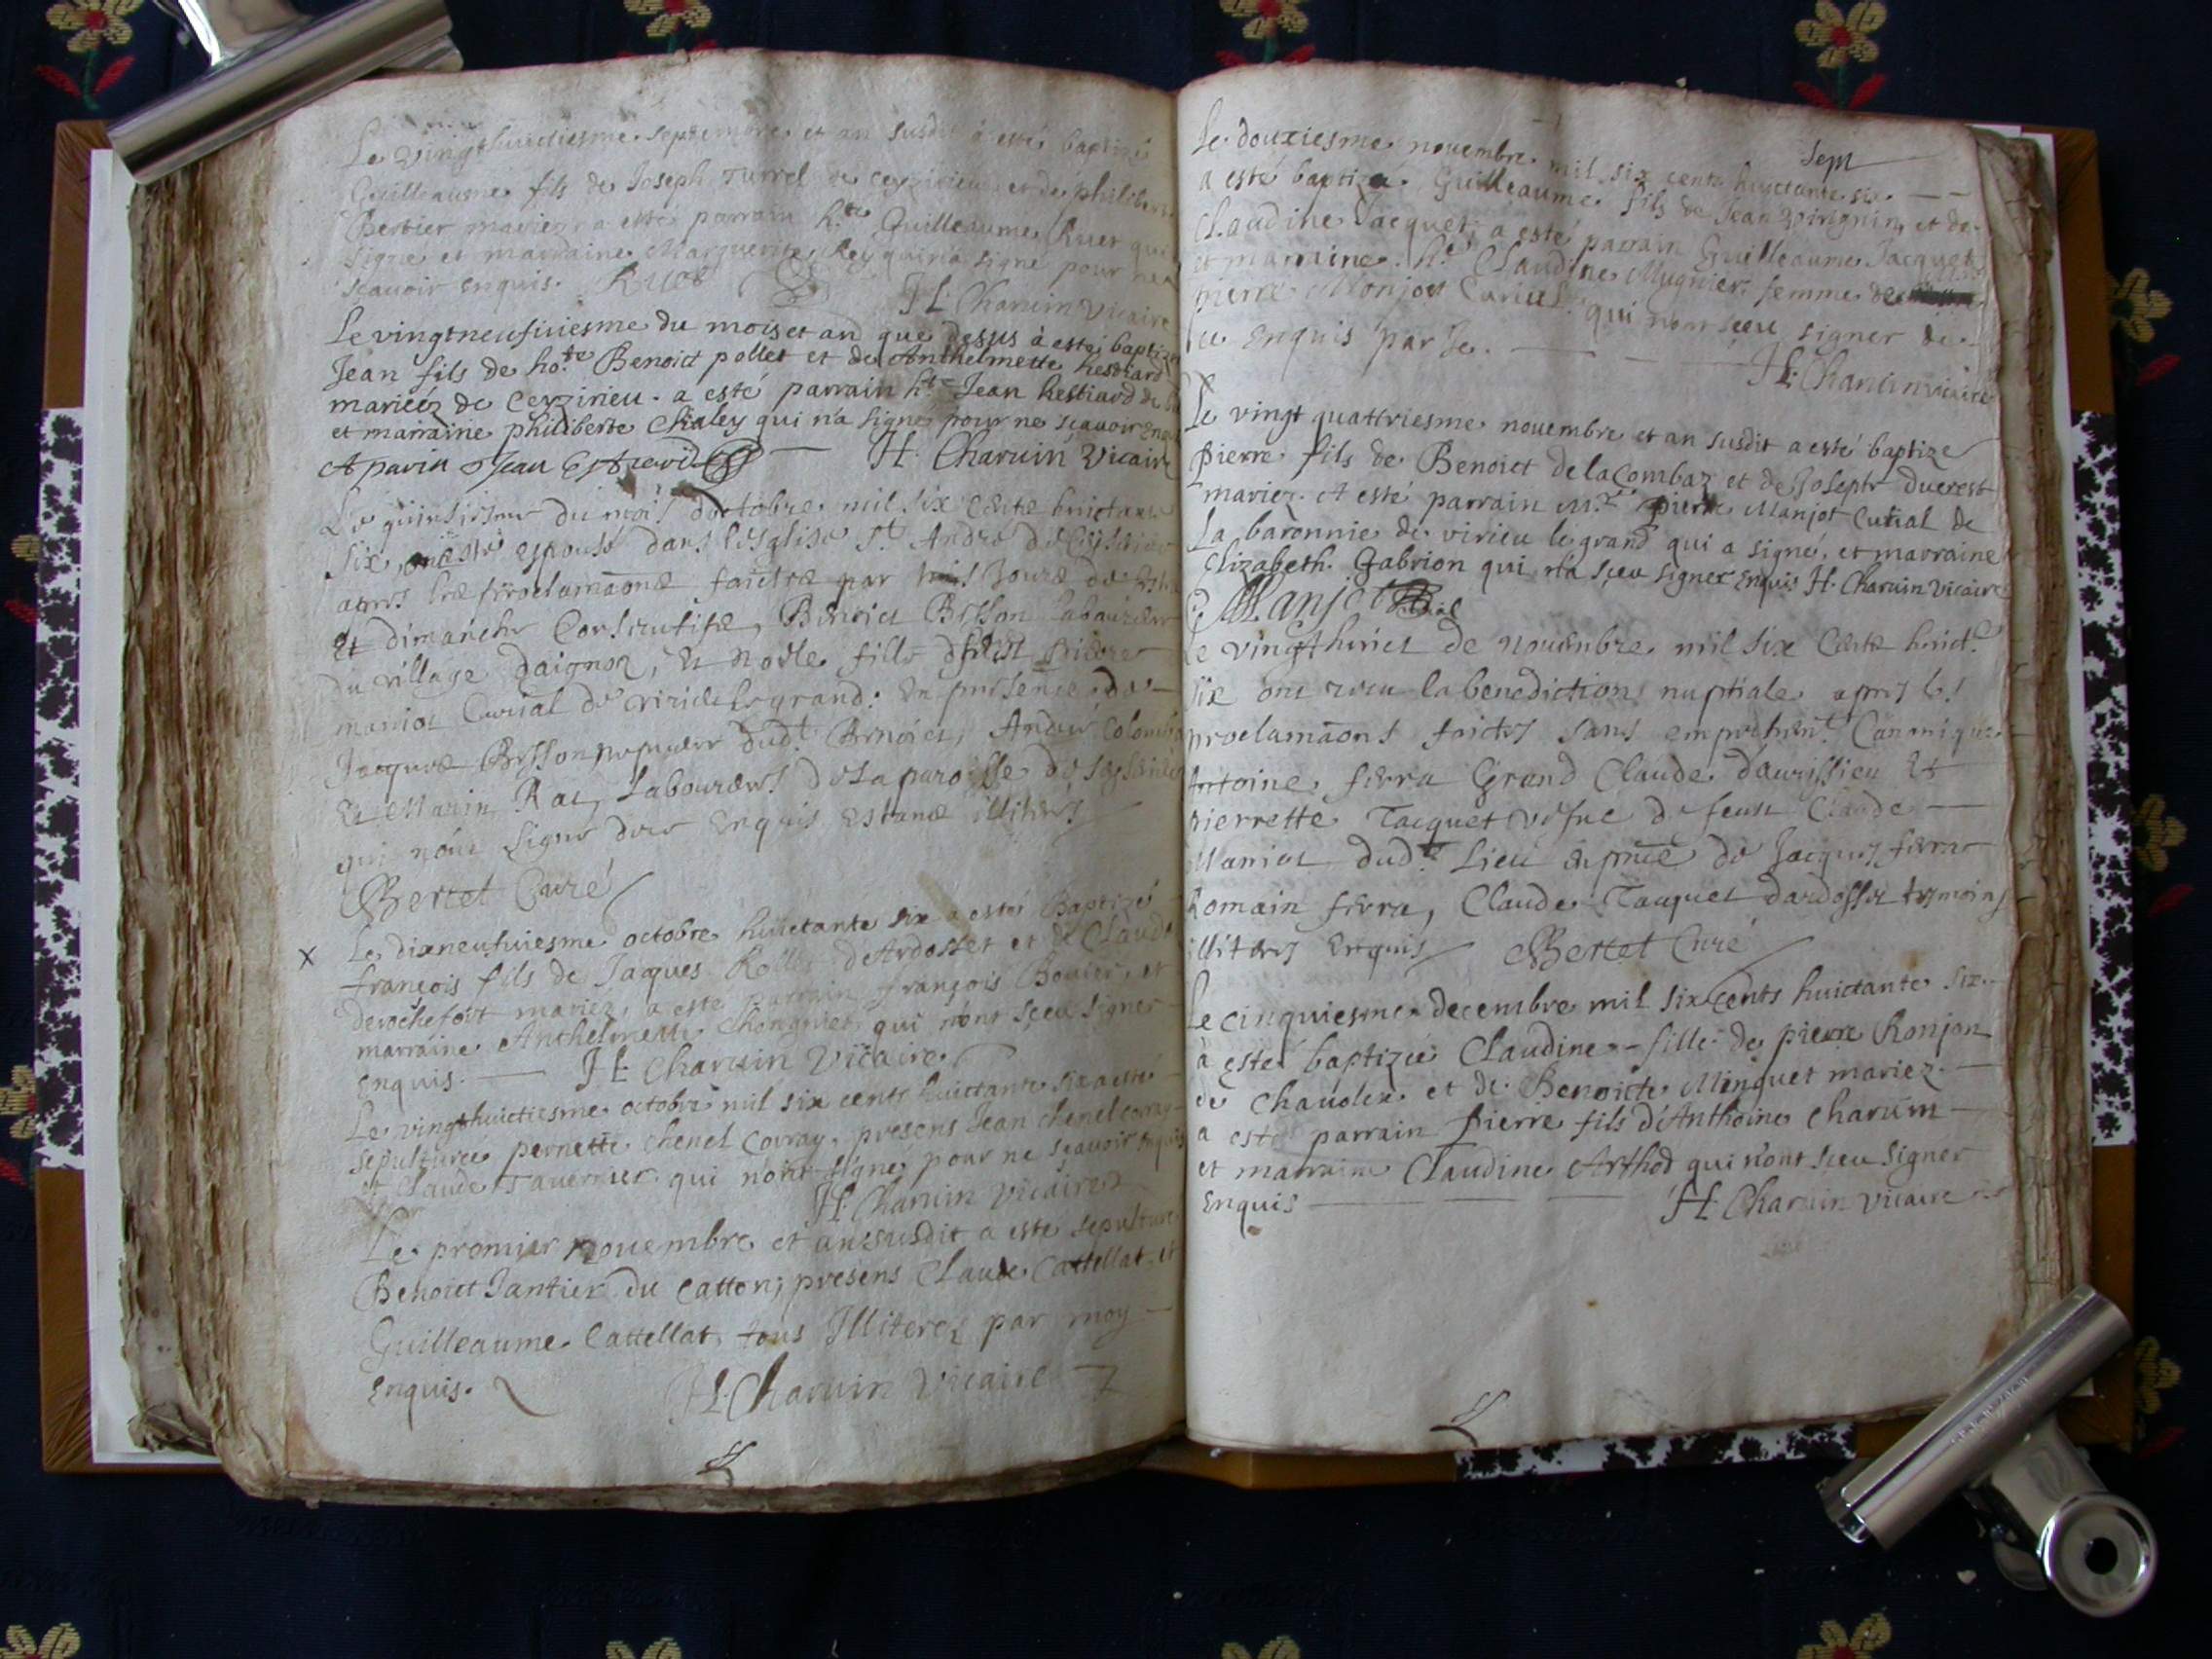 Le vingthuictiesme septembre et an susdit à esté baptizé
Guilleaume fils de Joseph Turrel de ceyzirieu et de philiberte
Bertier mariez, a esté parrain h.te Guilleaume Ruet qui
signé et marraine Marguerite Rey qui n'a signé pour ne
scavoir enquis. Ruet H Charuin Vicaire
Le vingtneufuiesme du mois et an que dessus à esté baptizé
Jean fils de ho.te Benoict pollet et de Anthelmette hestiard
mariéz de Ceyzirieu. a esté parrain h.te Jean hestiard de
et marraine philiberte Chaley qui n'a signé pour ne scavoir enquis
H. Charuin Vicaire
Le quinsiesme du mois doctobre mil six cents huictante
six, ont esté espousé dans lesglise S.t André de Ceyserieu
apres les proclamaõns faictes par trois Jours de feste
et dimanche Consecutifs, Benoict Bisson laboureur
du village daignoz, Et noele fille d feu Pierre
maniot Curial de virieu legrand: En presence de
Jacques Bisson Dud.t Benoict, André Colomb
Et Marin Rat, Laboureurs de La paroisse de
qui n'ont signé de ce Enquis Estants illiteres
Bertet Curé
x Le dixneufuiesme octobre huictante six a esté Baptizé
françois fils de Jacques Rollet d'Ardosset et de Claude
derochefort mariez, a esté parrain françois Bouier, et
marraine Anthelmette Chongnier qui n'ont sçeu signer
enquis. H Charuin Vicaire
Le vingthuictiesme octobre mil six cents huictante six a esté
sepulturée pernette chenel Covray, presens Jean chenel covray
et Claude Tauernier qui n'ont signé pour ne scauoir enquis
H. Charuin Vicaire
Le promier nouembre et an susdit a esté sepulturé
Benoict Jantier du catton, presens Claude Cattellat et
Guilleaume Cattellat, tous Illiterez par moy
enquis. H. Charuin Vicaire
Le douxiesme novembre mil six cents huictante six sept
a esté baptizé Guilleaume fils de Jean et de
Claudine Jacquet, a esté parrain Guilleaume Jacquet
et marraine h.e Claudine Mugnier femme de
pierre Monjot Curial qui n'ont sçeu signer de
ce enquis par Je. H. Charuin vicaire
Le vingt quattriesme novembre et an susdit a esté baptizé
Pierre fils de Benoict de laCombaz et de Josephe ducrest
mariez. A esté parrain M.re pierre Manjot Curial de
La baronnie de virieu le grand qui a signé, et marraine
Elizabeth Gabrion qui n'a sçeu signer enquis H. Charuin Vicaire
P Manjot
Le vingthuict de nouembre mil six Cents huict.e
six ont receu la benediction nuptiale apres les
proclamãons faictes sans empechem.t Canonique
Antoine ferra Grand Claude daurissieu Et
pierrette Tacquet vefue de feu Claude
Maniot dud.t Lieu En pñce de Jacques ferra
Romain ferra, Claude Tacquet dardosset tesmoins
illiteres Enquis Bertet Curé
Le cinquiesme decembre mil six cents huictante six
à esté baptizée Claudine fille de pierre Ronjon
de Chauolex et de Benoicte Minguet mariez.
a esté parrain Pierre fils d'Anthoine Charuin
et marraine Claudine Arthod qui n'ont sceu signer
enquis H. Charuin vicaire